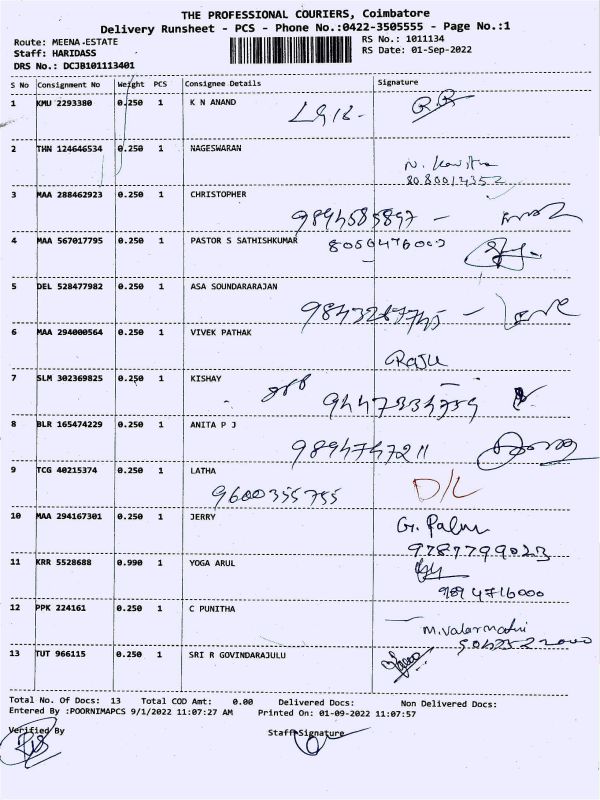 THE PROFESSIONAL COURIERS, Coimbatore
Delivery Runsheet - PCS - Phone No.:0422-3505555 - Page No.:1
Route: MEENA-ESTATE RS No.: 1011134
Staff: HARIDASS RS Date: 01-Sep-2022
DRS No.: DCJB101113401
S No Consignment No Weight PCS Consignee Details Signature
1 KMU 2293380 0.250 1 K N ANAND
2 THN 124646534 0.250 1 NAGESWARAN
8080012352
3 MAA 288462923 0.250 1 CHRISTOPHER
9894585897 -
4 MAA 567017795 0.250 1 PASTOR S SATHISHKUMAR
5 DEL 528477982 0.250 1 ASA SOUNDARARAJAN
9843267745 -
6 MAA 294000564 0.250 1 VIVEK PATHAK
Raju
7 SLM 302369825 0.250 1 KISHAY
9447334759
8 BLR 165474229 0.250 1 ANITA P J
9894747211
9 TCG 40215374 0.250 1 LATHA
9600355755 D/L
10 MAA 294167301 0.250 1 JERRY
9787799023
11 KRR 5528688 0.990 1 YOGA ARUL
9894716000
12 PPK 224161 0.250 1 C PUNITHA
M.Valarmathi
13 TUT 966115 0.250 1 SRI R GOVINDARAJULU
Total No. Of Docs: 13 Total COD Amt: 0.00 Delivered Docs: Non Delivered Docs:
Entered By :POORNIMAPCS 9/1/2022 11:07:27 AM Printed On: 01-09-2022 11:07:57
Verified By Staff Signature